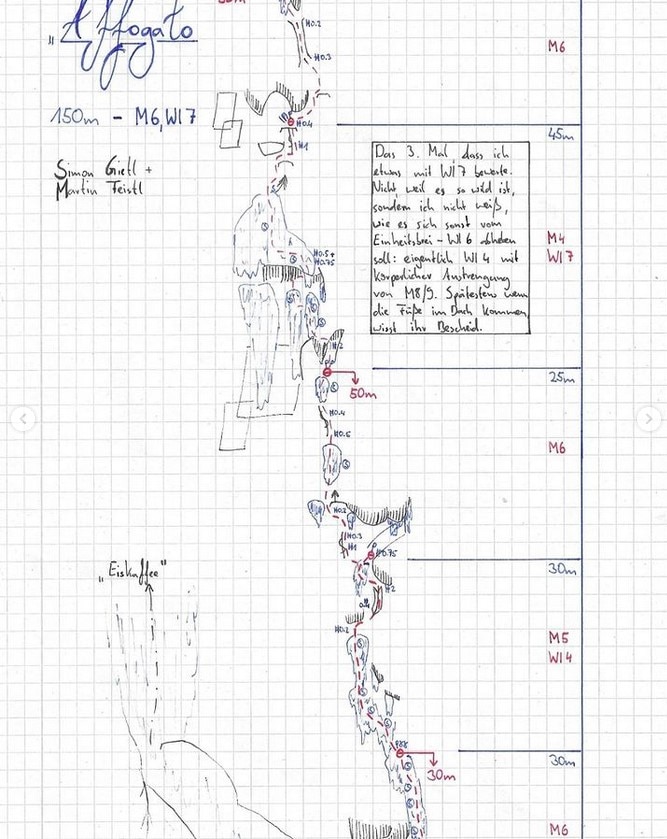 50m
„Affogato
150m - M6, WI7
Simon Gietl +
Martin Feistl
H0.2
H0.3
M6
H0.4
H1
45m
Das 3. Mal, dass ich
etwas mit WI7 bewerte.
Nicht weil es so wild ist,
sondern ich nicht weiß,
wie es sich sonst vom
Einheitsbrei-WI6 abheben
soll: eigentlich WI4 mit
körperlicher Anstrengung
von M8/9. Spätestens wenn
die Füße im Dach kommen
wisst ihr Bescheid.
M4
WI7
H0.5+
H0.75
25m
50m
H0.4
H0.5
M6
H0.2
H0.3
H1
H0.75
30m
H2
H0.2
M5
WI4
„Eiskaffee"
30m
30m
M6